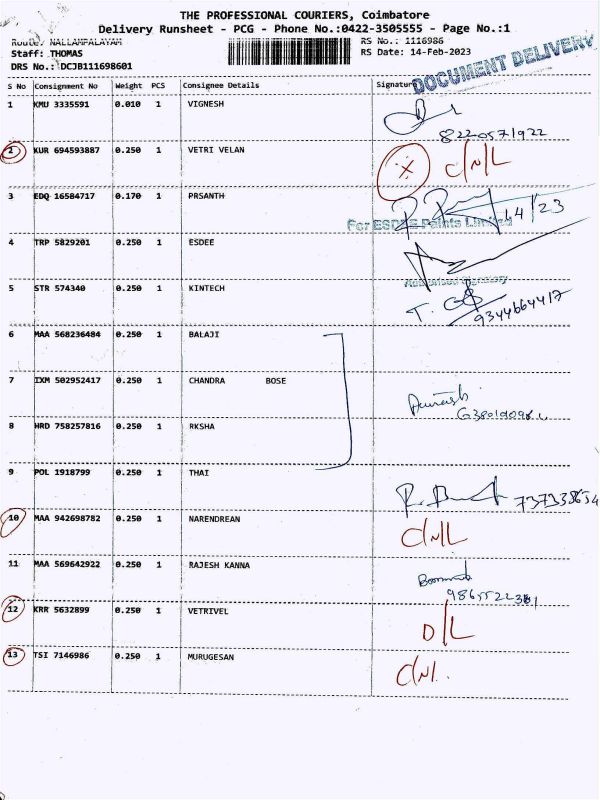 THE PROFESSIONAL COURIERS, Coimbatore
Delivery Runsheet - PCG - Phone No.:0422-3505555 - Page No.:1
Route: NALLAMPALAYAM RS No.: 1116986
Staff: THOMAS RS Date: 14-Feb-2023
DRS No.: DCJB111698601
DOCUMENT DELIVERY
S No Consignment No Weight PCS Consignee Details Signature
1 KMU 3335591 0.010 1 VIGNESH
8220571922
2 KUR 694593887 0.250 1 VETRI VELAN C/N/L
3 EDQ 16584717 0.170 1 PRSANTH
14/23
For ESDEE Paints Limited
4 TRP 5829201 0.250 1 ESDEE
Authorised Signatory
5 STR 574340 0.250 1 KINTECH
9344664417
6 MAA 568236484 0.250 1 BALAJI
7 IXM 502952417 0.250 1 CHANDRA BOSE
8 HRD 758257816 0.250 1 RKSHA
9 POL 1918799 0.250 1 THAI
10 MAA 942698782 0.250 1 NARENDREAN C/N/L
11 MAA 569642922 0.250 1 RAJESH KANNA
12 KRR 5632899 0.250 1 VETRIVEL D/L
13 TSI 7146986 0.250 1 MURUGESAN C/N/.